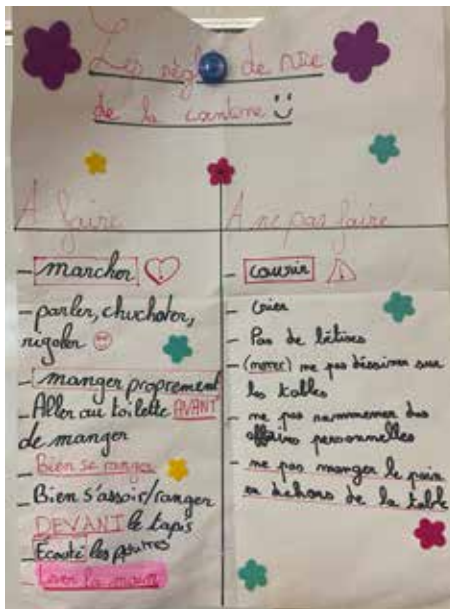 Les règl de vie
de la cantine
A faire
- marcher
- parler, chuchoter,
rigoler
- manger proprement
- Aller au toilette AVANT
de manger
- Bien se ranger
- Bien s'assoir/ranger
DEVANT le tapis
- Écouté les
- Lever la main
A ne pas faire
- courir
- crier
- Pas de bêtises
- ne pas dessiner sur
les tables
- ne pas des
affaires personnelles
- ne pas manger le pain
en dehors de la table